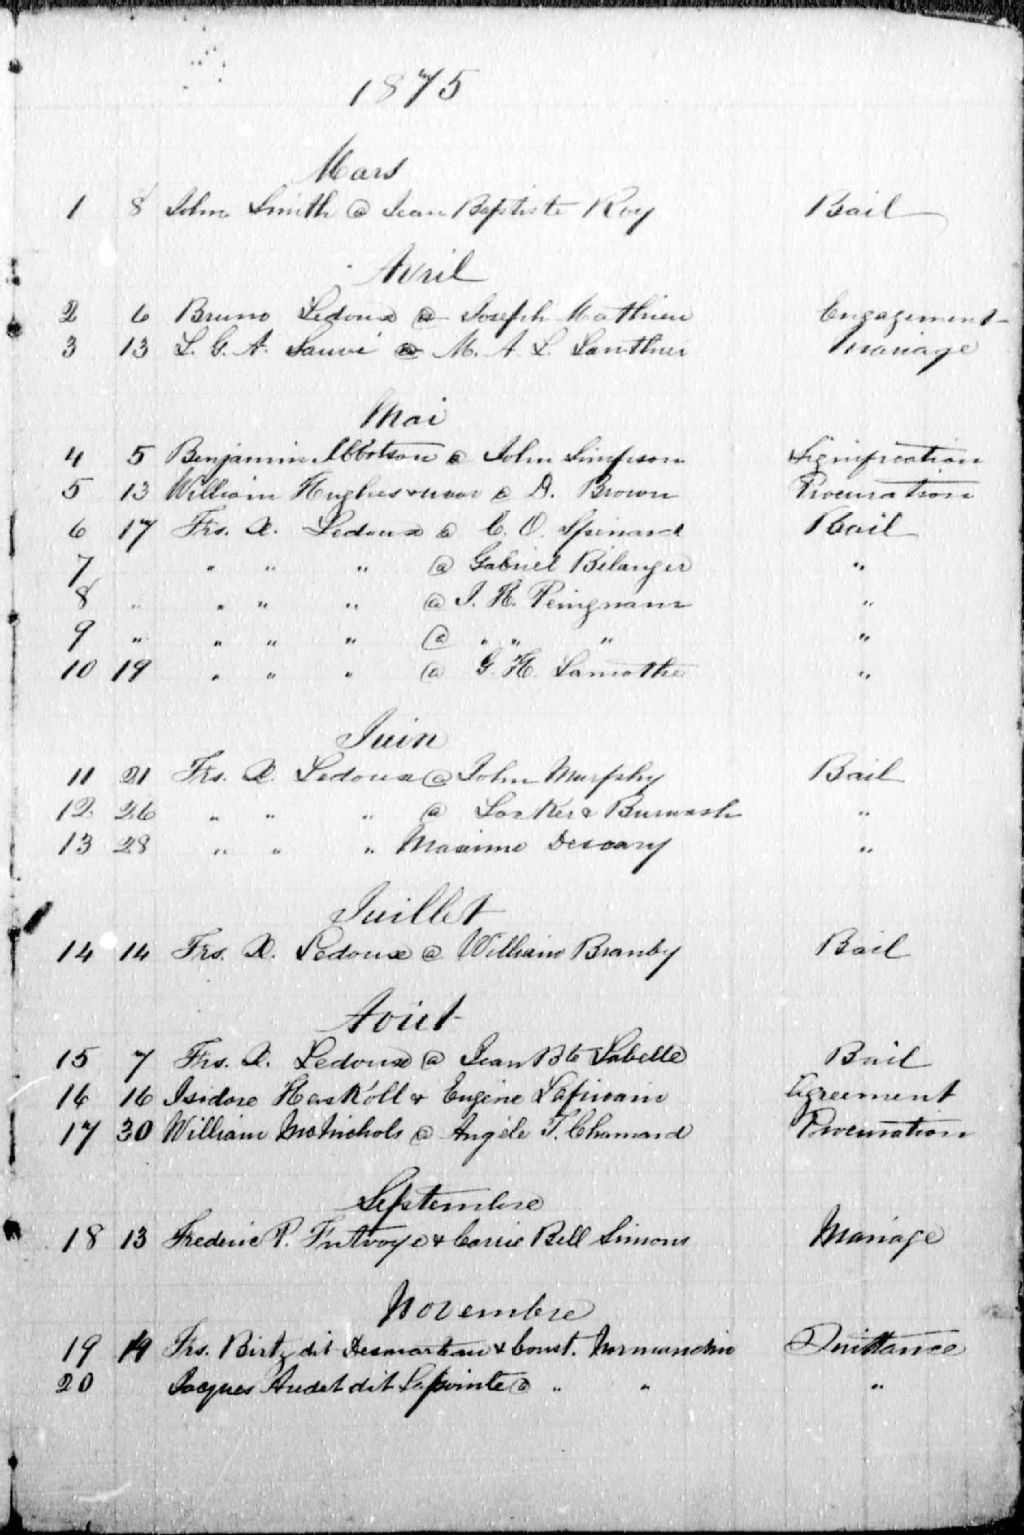 1875
Mars
1 8 John Smith @ Jean Baptiste Roy Bail
Avril
2 6 Bruno Ledoux @ Joseph Mathieu Engagement
3 13 L. G. A. @ M. A. L. Mariage
Mai
4 5 Benjamin Ibbotson @ John Simpson Signification
5 13 William Hughes @ D. Brown Procuration
6 17 Frs. X. Ledoux @ C. O. Spenard Bail
7 " " " @ Gabriel Bélanger "
8 " " " " @ J. H. "
9 " " " " @ " " " "
10 19 " " " @ G. H. Lamothe "
Juin
11 21 Frs. X. Ledoux @ John Murphy Bail
12 26 " " " @ Locker & Burwash "
13 28 " " " Maxime Descary "
Juillet
14 14 Frs. X. Ledoux @ William Branby Bail
Aout
15 7 Frs. X. Ledoux @ Jean Bte Labelle Bail
16 16 Isidore Haskoll & Eugène Agreement
17 30 William McNichols @ Angèle T. Chamard Procuration
Septembre
18 13 Frederic P. Futvoye & Carrie Bell Simons Mariage
Novembre
19 19 Frs. Birtz dit Desmarteau & Const. Normandin Quittance
20 Jacques Audet dit Lapointe @ " " "